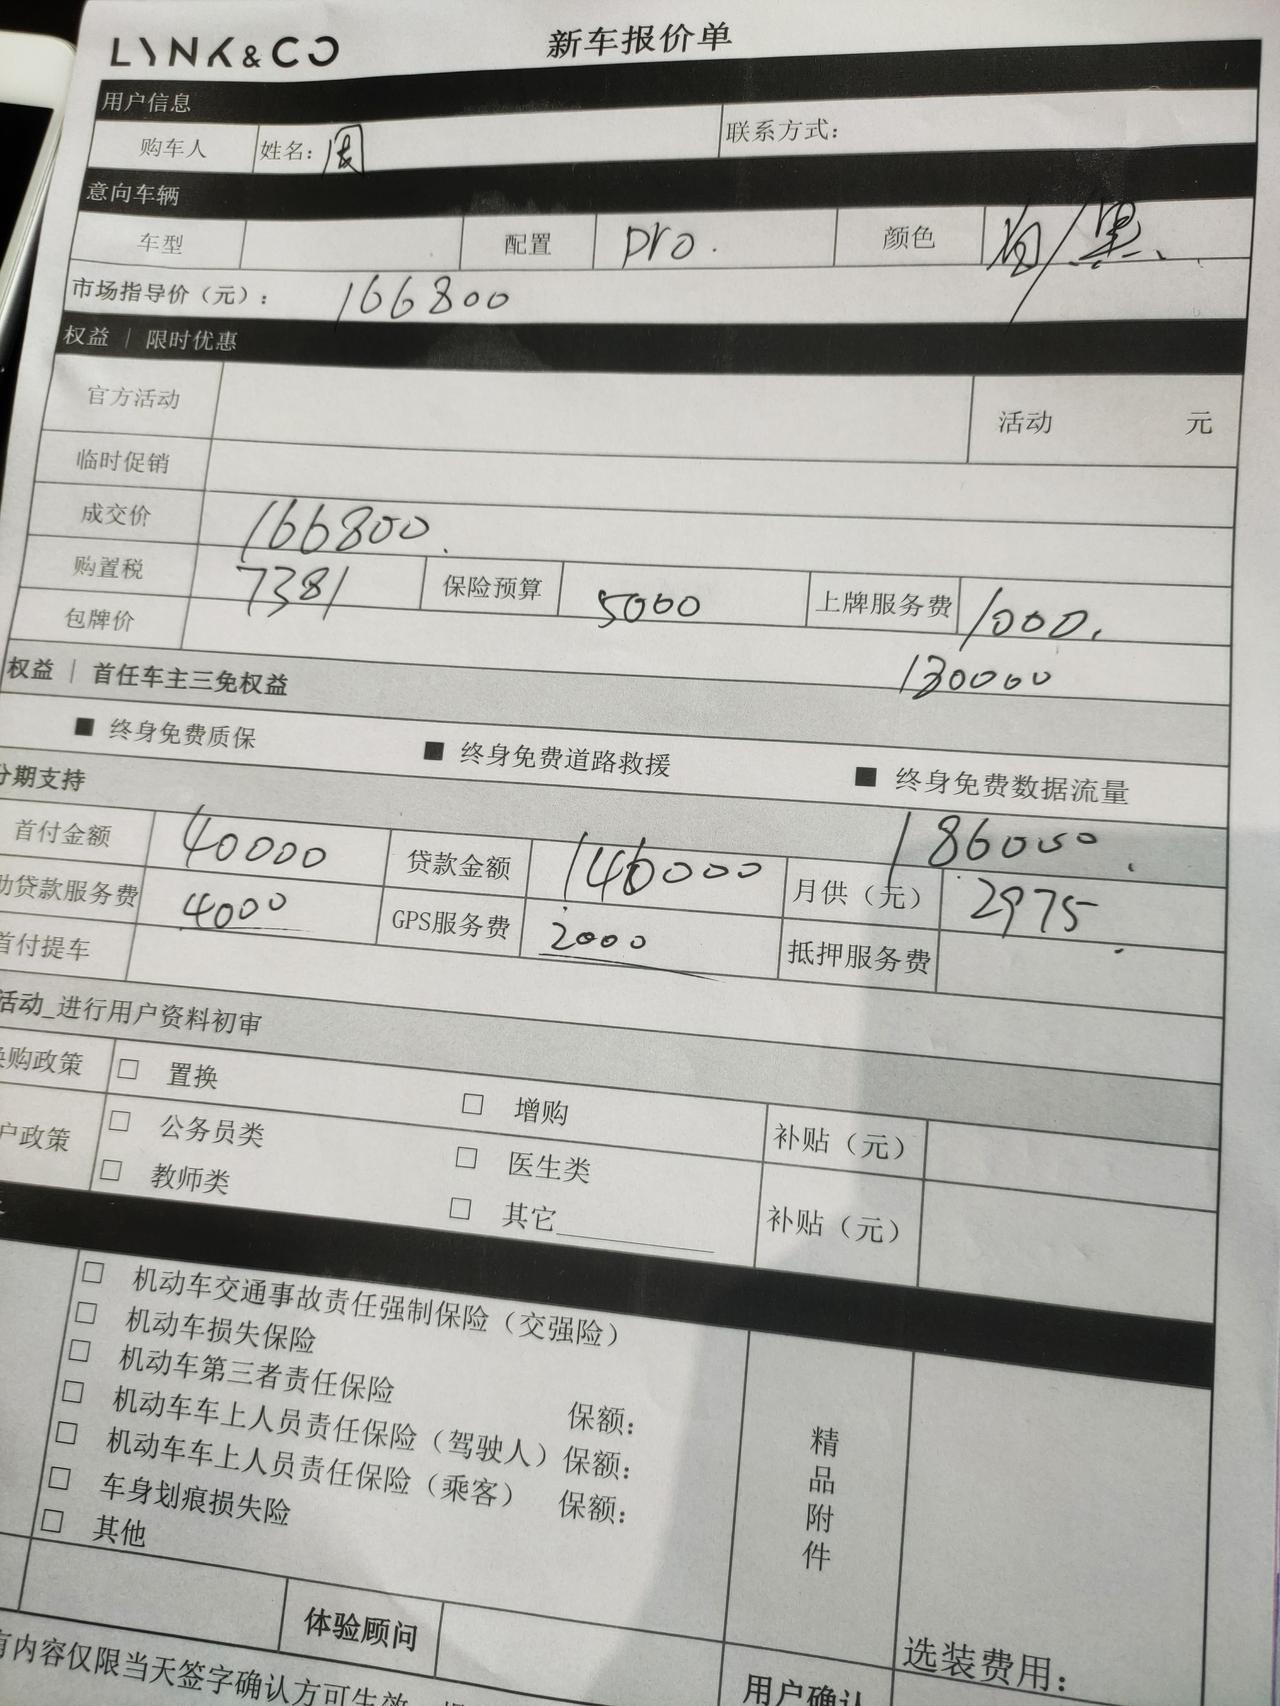 LYNK&CO
新车报价单
用户信息
购车人 姓名：周 联系方式：
意向车辆
车型 配置 pro. 颜色 白/黑
市场指导价（元）： 166800
权益 | 限时优惠
官方活动 活动 元
临时促销
成交价 166800.
购置税 7381 保险预算 5000 上牌服务费 1000.
包牌价 180000
权益 | 首任车主三免权益
■ 终身免费质保 ■ 终身免费道路救援 ■ 终身免费数据流量
分期支持 186000.
首付金额 40000 贷款金额 146000 月供（元） 2975
助贷款服务费 4000 GPS服务费 2000 抵押服务费
首付提车
活动_进行用户资料初审
换购政策 □ 置换 □ 增购 补贴（元）
户政策 □ 公务员类 □ 医生类
□ 教师类 □ 其它 补贴（元）
□ 机动车交通事故责任强制保险（交强险）
□ 机动车损失保险
□ 机动车第三者责任保险 保额：
□ 机动车车上人员责任保险（驾驶人） 保额：
□ 机动车车上人员责任保险（乘客） 保额：
□ 车身划痕损失险
□ 其他
精品附件
体验顾问
选装费用：
有内容仅限当天签字确认方可生效
用户确认